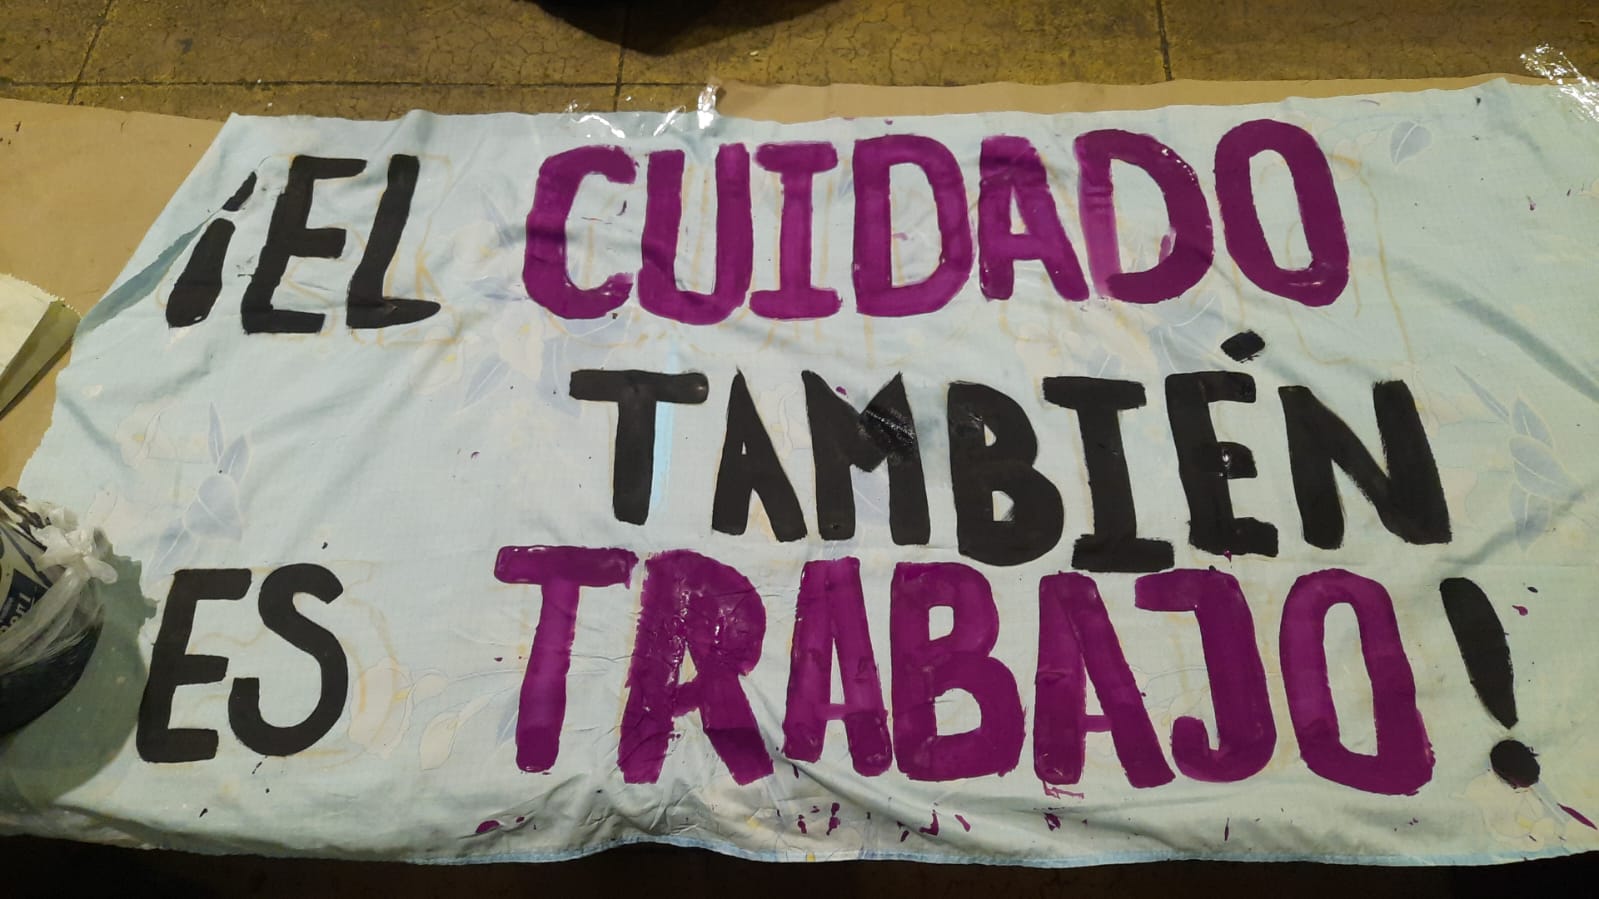 ¡EL CUIDADO
TAMBIÉN
ES TRABAJO!